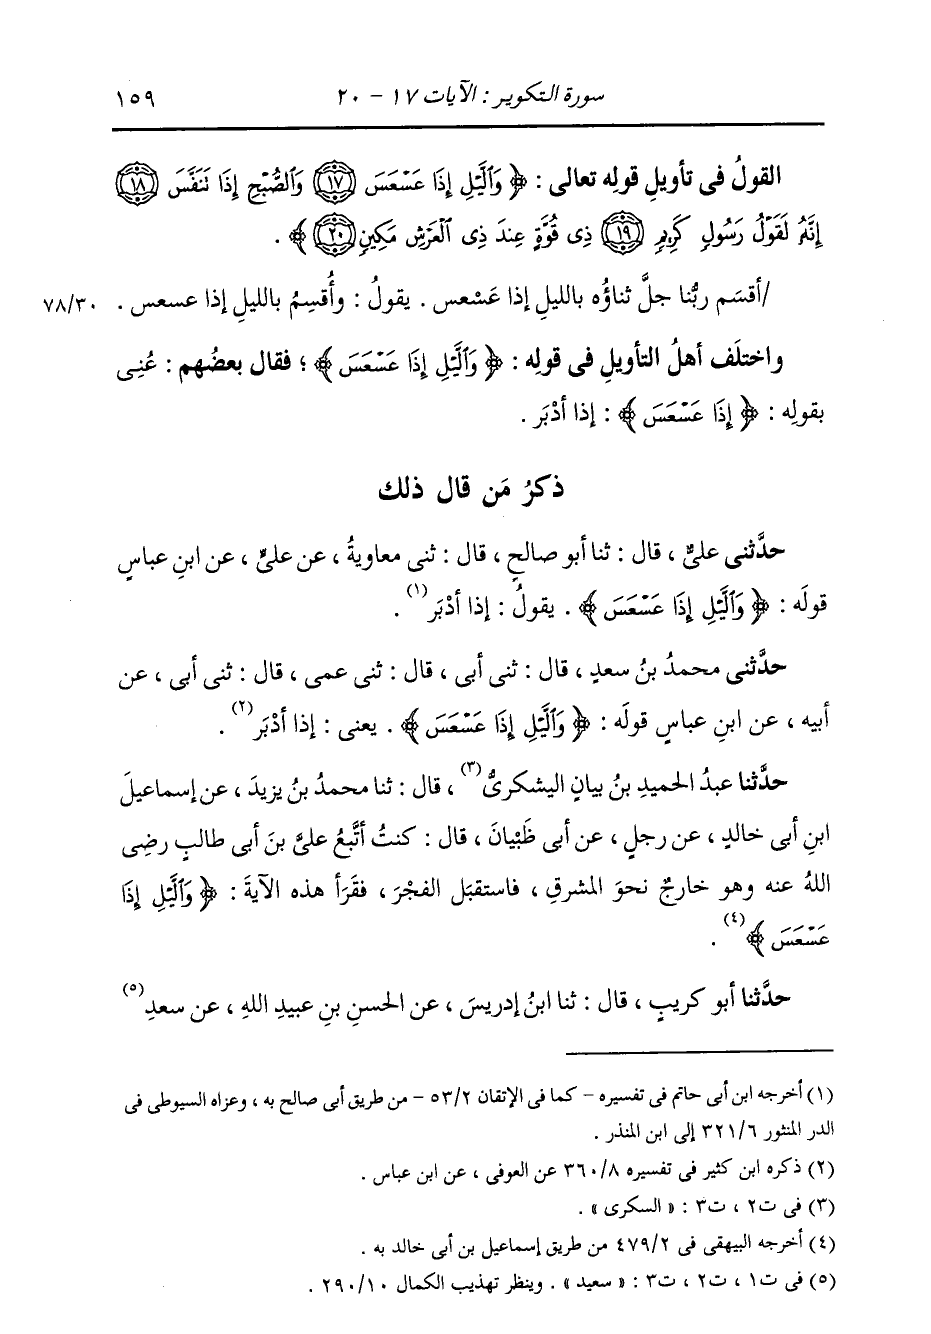 سورة التكوير : الآيات ١٧ - ٢٠ ١٥٩
القولُ فى تأويلِ قوله تعالى : ﴿ وَٱلَّيْلِ إِذَا عَسْعَسَ ١٧ وَٱلصُّبْحِ إِذَا تَنَفَّسَ ١٨
إِنَّهُۥ لَقَوْلُ رَسُولٍ كَرِيمٍ ١٩ ذِى قُوَّةٍ عِندَ ذِى ٱلْعَرْشِ مَكِينٍ ٢٠ ﴾ .
/أقسَم ربُّنا جلَّ ثناؤُه بالليلِ إذا عَسْعس . يقولُ : وأُقسِمُ بالليلِ إذا عسعس . ٧٨/٣٠
واختلَف أهلُ التأويلِ فى قولِه : ﴿ وَٱلَّيْلِ إِذَا عَسْعَسَ ﴾ ؛ فقال بعضُهم : عُنِى
بقولِه : ﴿ إِذَا عَسْعَسَ ﴾ : إذا أدْبَر .
ذكرُ مَن قال ذلك
حدَّثنى علىٌّ ، قال : ثنا أبو صالحٍ ، قال : ثنى معاويةُ ، عن علىٍّ ، عن ابنِ عباسٍ
قولَه : ﴿ وَٱلَّيْلِ إِذَا عَسْعَسَ ﴾ . يقولُ : إذا أدْبَر (١) .
حدَّثنى محمدُ بنُ سعدٍ ، قال : ثنى أبى ، قال : ثنى عمى ، قال : ثنى أبى ، عن
أبيه ، عن ابنِ عباسٍ قولَه : ﴿ وَٱلَّيْلِ إِذَا عَسْعَسَ ﴾ . يعنى : إذا أدْبَر (٢) .
حدَّثنا عبدُ الحميدِ بنُ بيانٍ اليشكرىُّ (٣) ، قال : ثنا محمدُ بنُ يزيدَ ، عن إسماعيلَ
ابنِ أبى خالدٍ ، عن رجلٍ ، عن أبى ظَبْيانَ ، قال : كنتُ أتَّبعُ علىَّ بنَ أبى طالبٍ رضِى
اللهُ عنه وهو خارجٌ نحوَ المشرقِ ، فاستقبَل الفجْرَ ، فقَرَأ هذه الآيةَ : ﴿ وَٱلَّيْلِ إِذَا
عَسْعَسَ ﴾ (٤) .
حدَّثنا أبو كريبٍ ، قال : ثنا ابنُ إدريسَ ، عن الحسنِ بنِ عبيدِ اللهِ ، عن سعدِ (٥)
(١) أخرجه ابن أبى حاتم فى تفسيره - كما فى الإتقان ٥٣/٢ - من طريق أبى صالح به ، وعزاه السيوطى فى
الدر المنثور ٣٢١/٦ إلى ابن المنذر .
(٢) ذكره ابن كثير فى تفسيره ٣٦٠/٨ عن العوفى ، عن ابن عباس .
(٣) فى ت٢ ، ت٣ : « السكرى » .
(٤) أخرجه البيهقى فى ٤٧٩/٢ من طريق إسماعيل بن أبى خالد به .
(٥) فى ت١ ، ت٢ ، ت٣ : « سعيد » . وينظر تهذيب الكمال ٢٩٠/١٠ .